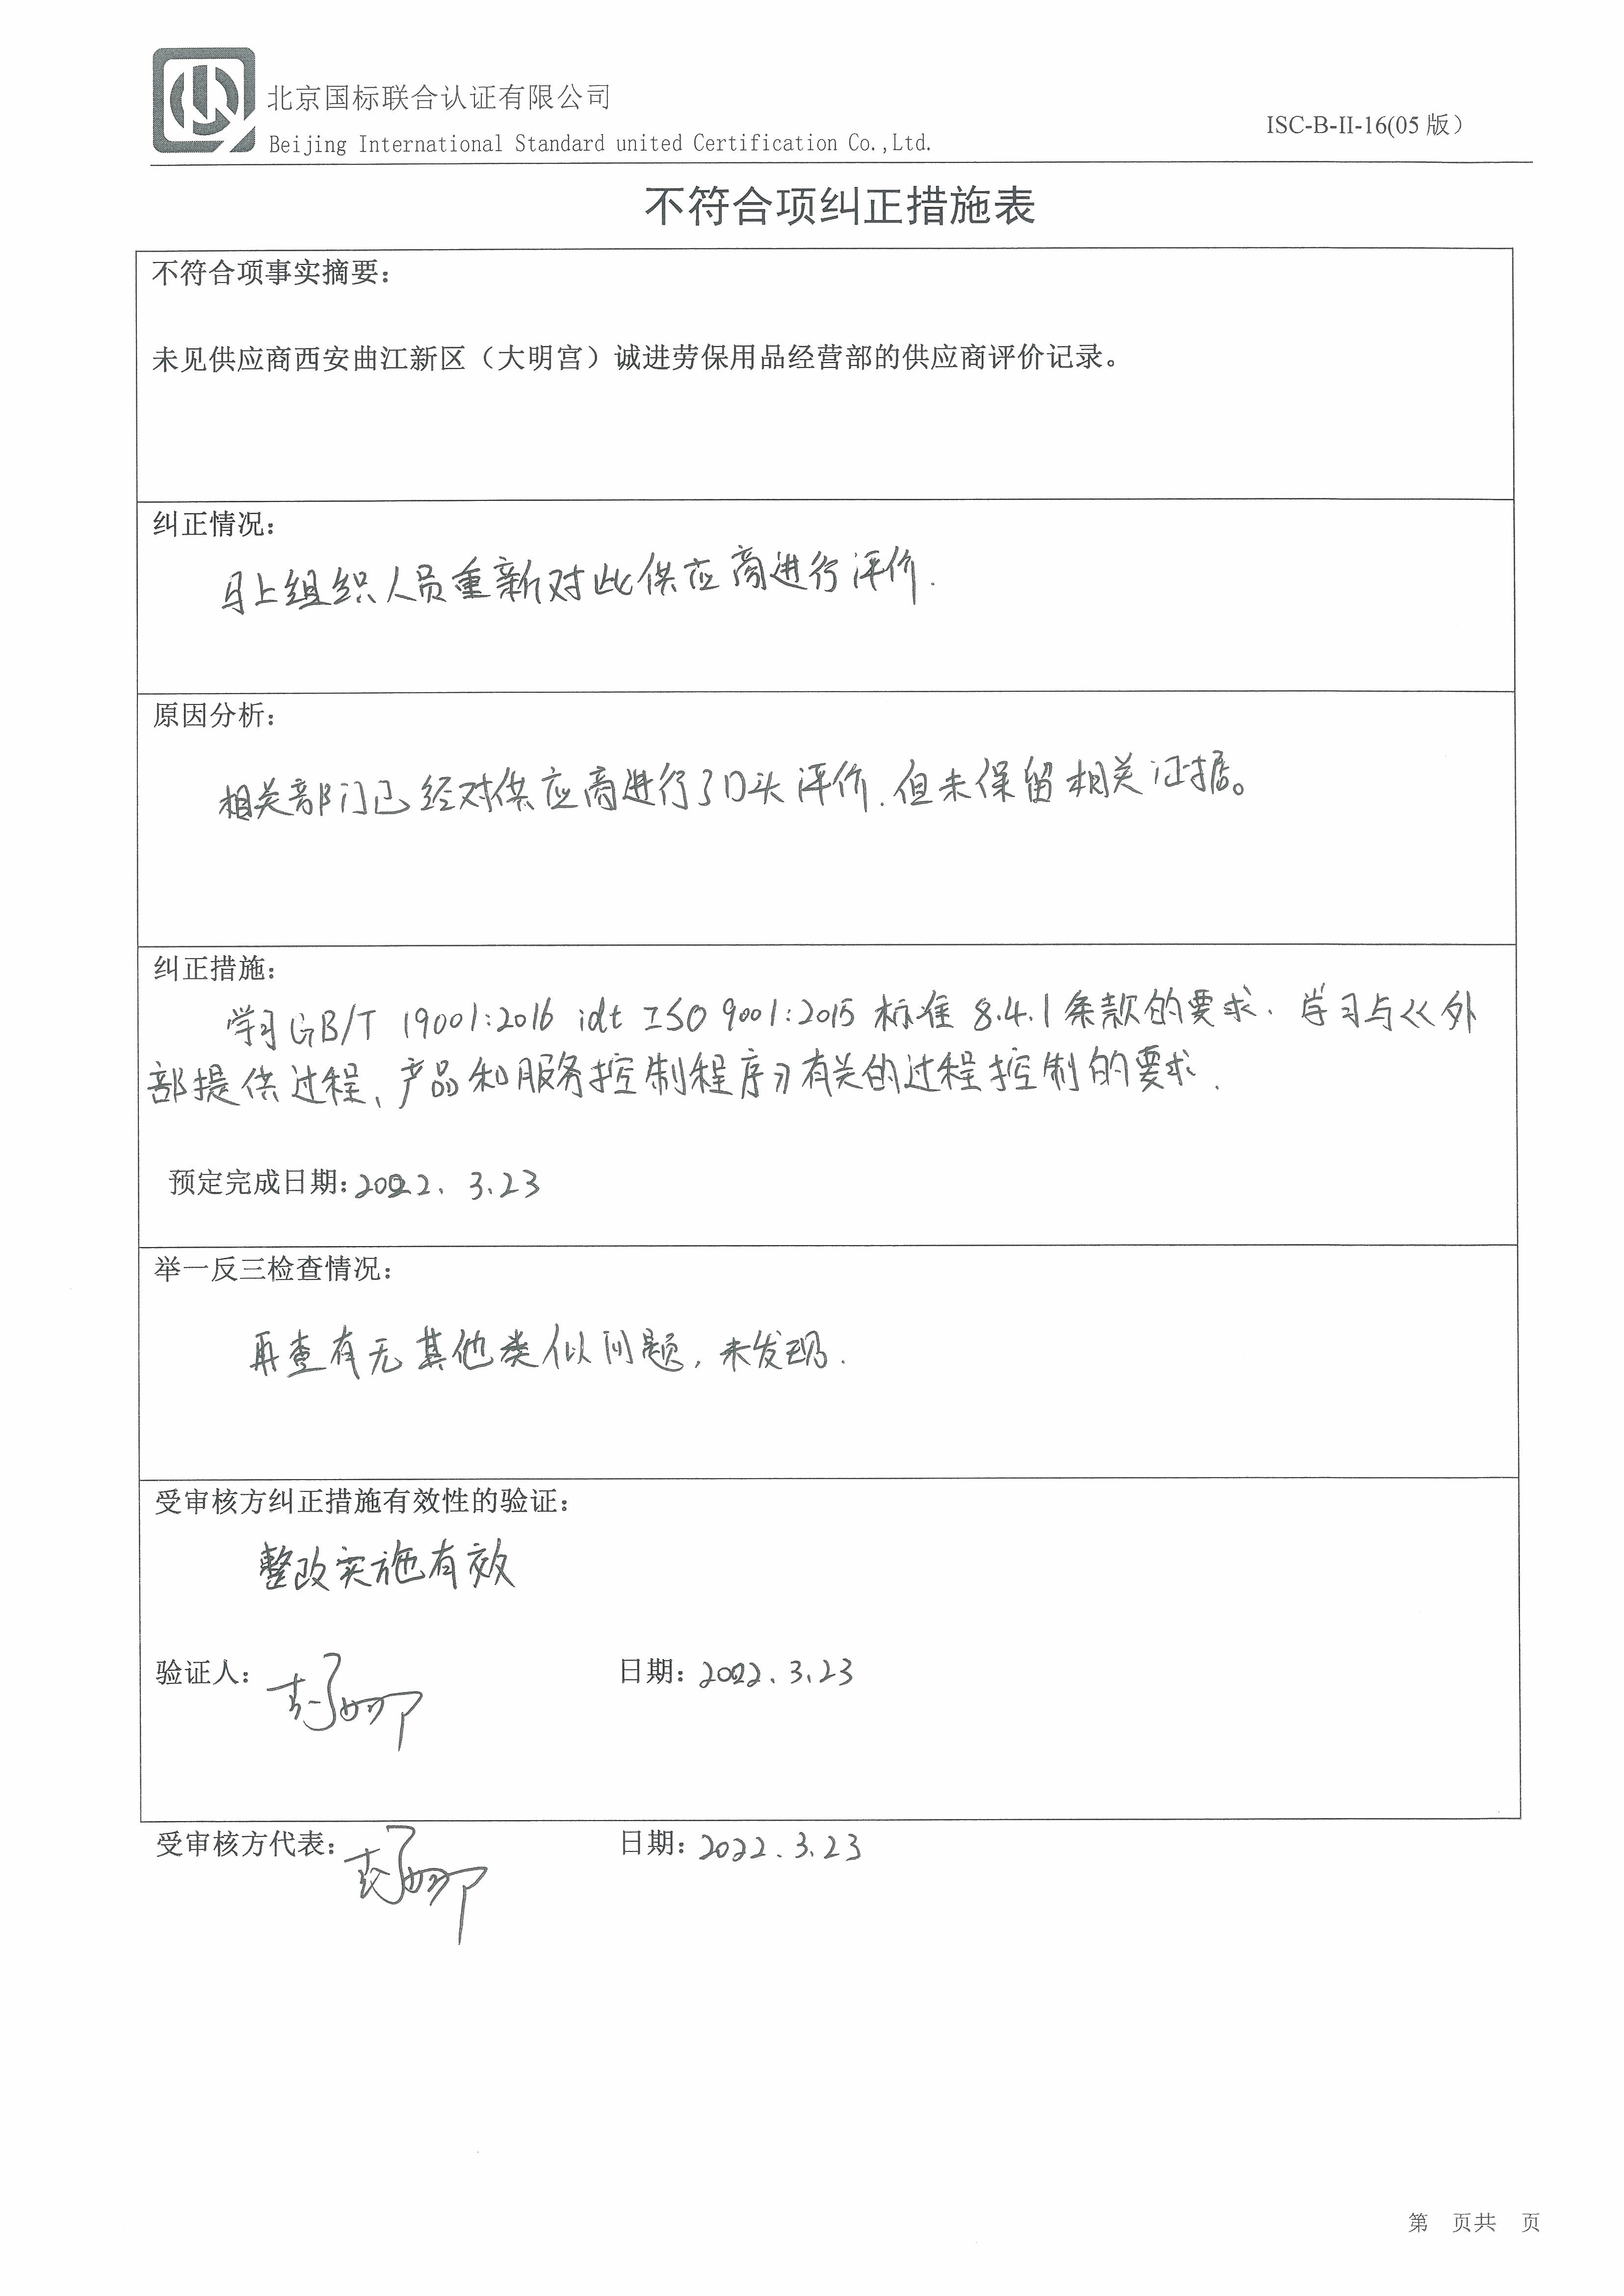 北京国标联合认证有限公司
Beijing International Standard united Certification Co.,Ltd.
ISC-B-II-16(05 版）
不符合项纠正措施表
不符合项事实摘要：
未见供应商西安曲江新区（大明宫）诚进劳保用品经营部的供应商评价记录。
纠正情况：
马上组织人员重新对此供应商进行评价.
原因分析：
相关部门已经对供应商进行了口头评价.但未保留相关证据。
纠正措施：
学习GB/T 19001:2016 idt ISO 9001:2015 标准 8.4.1条款的要求. 学习与《外
部提供过程、产品和服务控制程序》有关的过程控制的要求.
预定完成日期：2022. 3.23
举一反三检查情况：
再查有无其他类似问题，未发现.
受审核方纠正措施有效性的验证：
整改实施有效
验证人： 日期：2022.3.23
受审核方代表： 日期：2022.3.23
第 页共 页